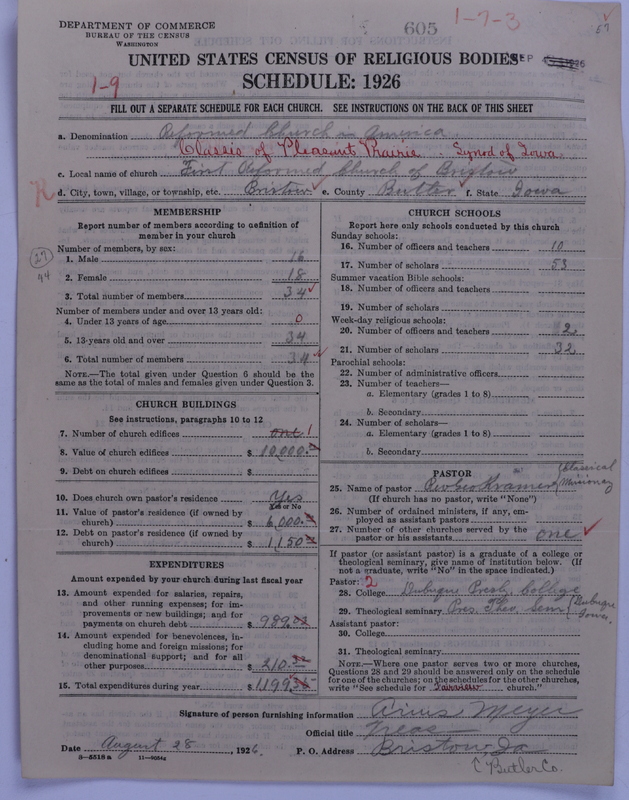 DEPARTMENT OF COMMERCE
BUREAU OF THE CENSUS
WASHINGTON
605
1-7-3
57
UNITED STATES CENSUS OF RELIGIOUS BODIES
SEP
SCHEDULE: 1926
1-9
FILL OUT A SEPARATE SCHEDULE FOR EACH CHURCH. SEE INSTRUCTIONS ON THE BACK OF THIS SHEET
a. Denomination Reformed Church in America
Classis of Pleasant Prairie Synod of Iowa.
c. Local name of church First Reformed Church of Bristow
R
d. City, town, village, or township, etc. Bristow e. County Butler f. State Iowa
MEMBERSHIP
Report number of members according to definition of member in your church
Number of members, by sex:
27
44
1. Male 16
2. Female 18
3. Total number of members 34
Number of members under and over 13 years old:
4. Under 13 years of age 0
5. 13 years old and over 34
6. Total number of members 34
NOTE.—The total given under Question 6 should be the
same as the total of males and females given under Question 3.
CHURCH BUILDINGS
See instructions, paragraphs 10 to 12
7. Number of church edifices one 1
8. Value of church edifices $ 10,000.
9. Debt on church edifices $
10. Does church own pastor's residence Yes
Yes or No
11. Value of pastor's residence (if owned by
church) $ 6,000.
12. Debt on pastor's residence (if owned by
church) $ 1150
EXPENDITURES
Amount expended by your church during last fiscal year
13. Amount expended for salaries, repairs,
and other running expenses; for im-
provements or new buildings; and for
payments on church debt $ 989.
14. Amount expended for benevolences, in-
cluding home and foreign missions; for
denominational support; and for all
other purposes $ 210.
15. Total expenditures during year $ 1199.
CHURCH SCHOOLS
Report here only schools conducted by this church
Sunday schools:
16. Number of officers and teachers 10
17. Number of scholars 53
Summer vacation Bible schools:
18. Number of officers and teachers
19. Number of scholars
Week-day religious schools:
20. Number of officers and teachers 2
21. Number of scholars 32
Parochial schools:
22. Number of administrative officers
23. Number of teachers—
a. Elementary (grades 1 to 8)
b. Secondary
24. Number of scholars—
a. Elementary (grades 1 to 8)
b. Secondary
PASTOR
25. Name of pastor Rev Geo Kramer (Classical Missionary
(If church has no pastor, write "None")
26. Number of ordained ministers, if any, em-
ployed as assistant pastors
27. Number of other churches served by the
pastor or his assistants one
If pastor (or assistant pastor) is a graduate of a college or
theological seminary, give name of institution below. (If
not a graduate, write "No" in the space indicated.)
Pastor: 2
28. College Dubuque Presb. College
29. Theological seminary Pres. Theo. Sem (Dubuque Iowa.
Assistant pastor:
30. College
31. Theological seminary
NOTE.—Where one pastor serves two or more churches,
Questions 28 and 29 should be answered only on the schedule
for one of the churches; on the schedules for the other churches,
write "See schedule for Fairview church."
Signature of person furnishing information Arius Meyer
Official title Treas
Date August 28, 1926 P. O. Address Bristow, Ia
8-5518 a 11-9054a
C Butler Co.